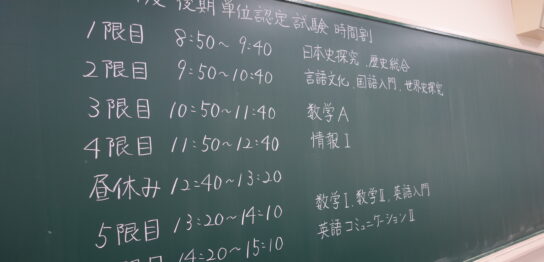 後期単位認定試験 時間割
1限目 8:50~9:40 日本史探究、歴史総合
2限目 9:50~10:40 言語文化、国語入門、世界史探究
3限目 10:50~11:40 数学A
4限目 11:50~12:40 情報I
昼休み 12:40~13:20
5限目 13:20~14:10 数学I、数学II、英語入門
英語コミュニケーションII
限目 14:20~15:10